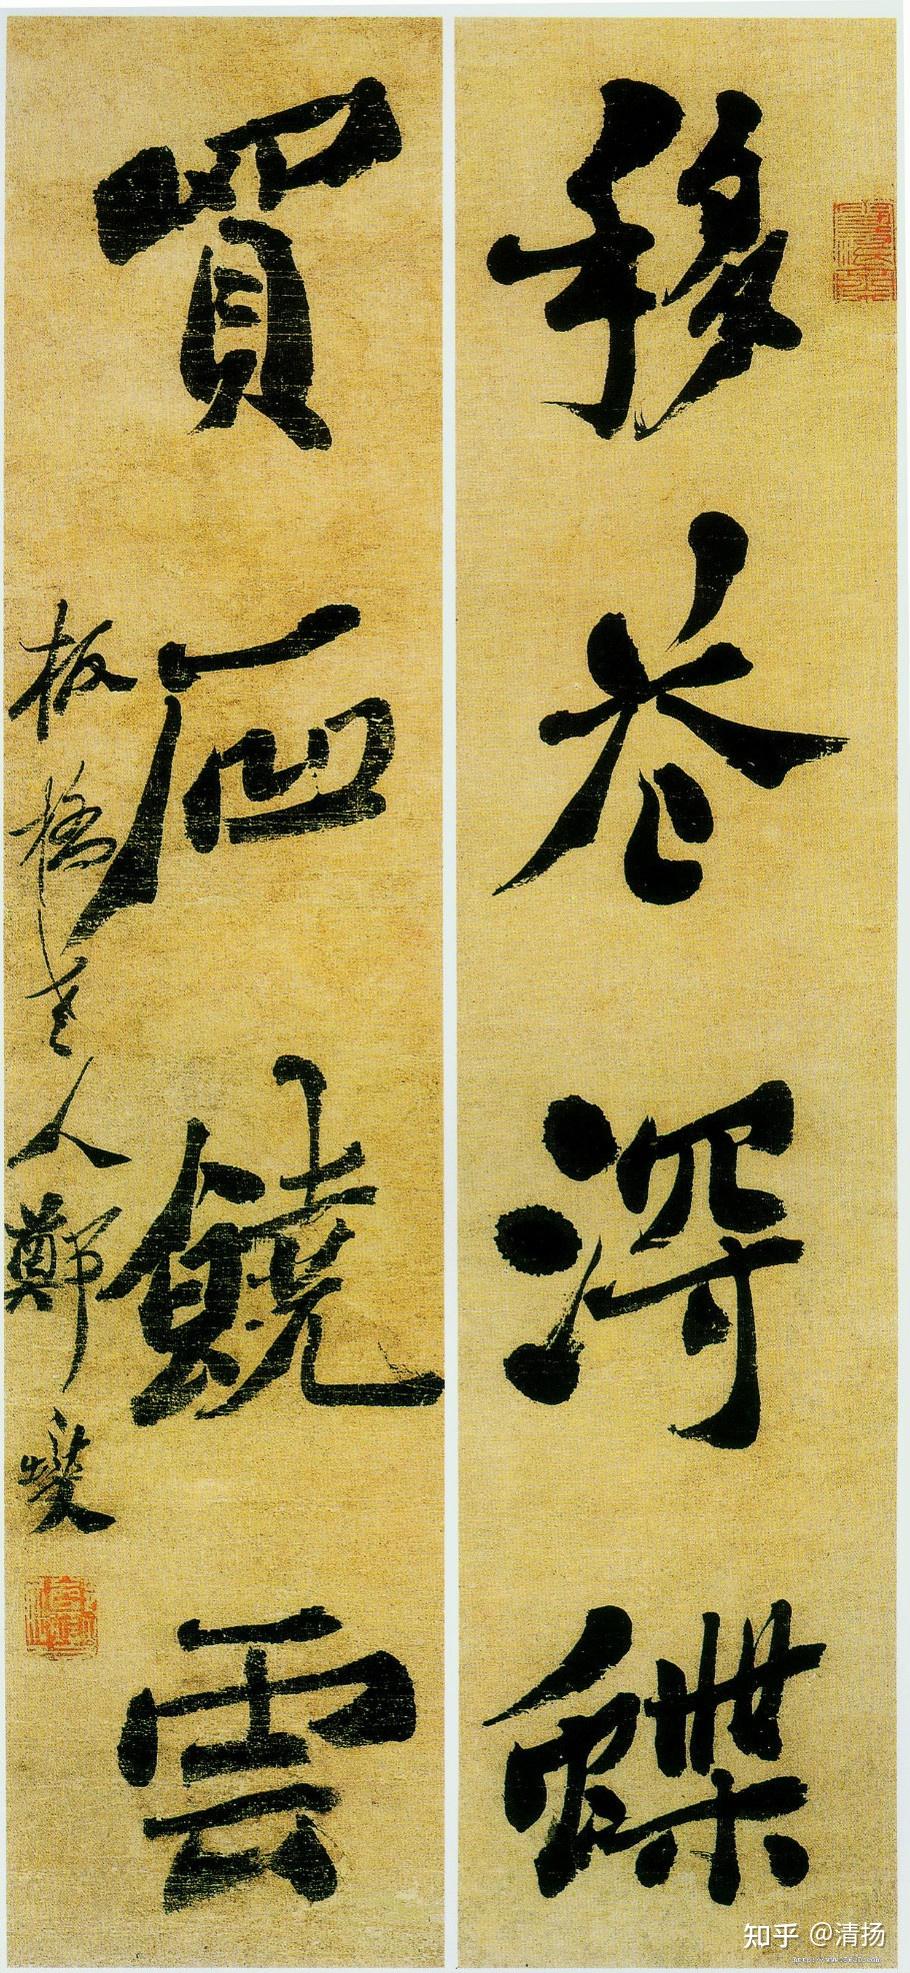 移花得蝶
買石饒雲
板橋老人鄭燮
知乎 @清扬